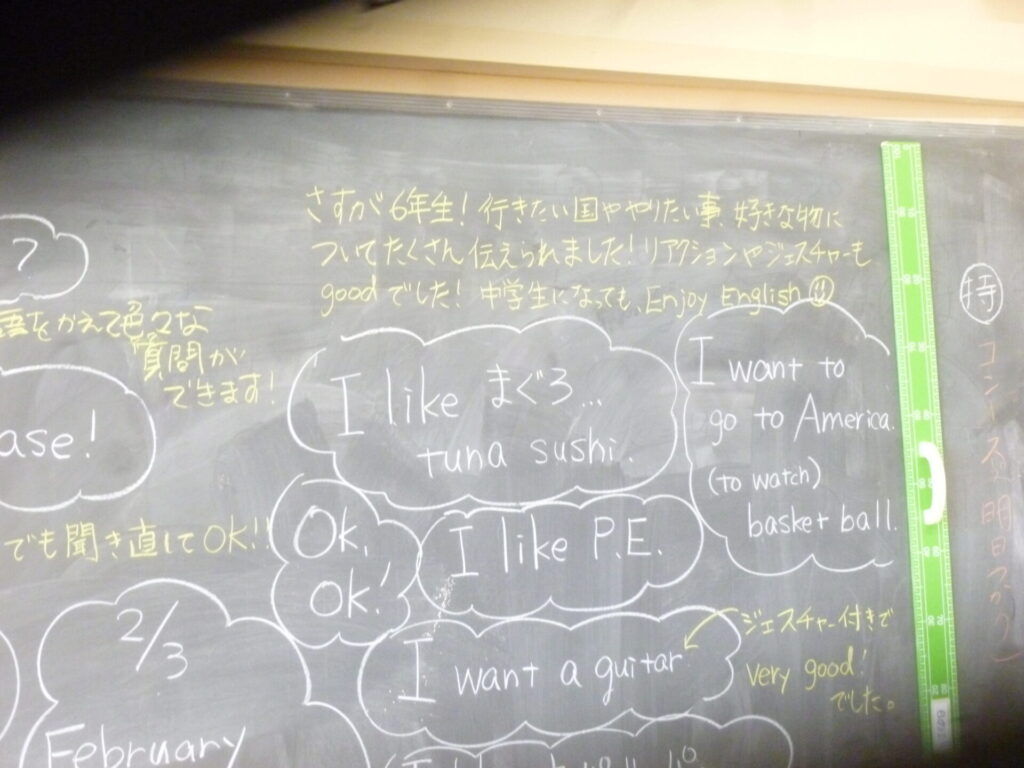 さすが6年生！行きたい国ややりたい事、好きな物に
ついてたくさん伝えられました！リアクションやジェスチャーも
goodでした！中学生になっても、Enjoy English
?
をかえて色々な
質問が
できます！
ase!
I like まぐろ…
tuna sushi.
I want to
go to America.
(to watch)
basket ball.
でも聞き直してOK!!
Ok,
Ok!
I like P.E.
2/3
February
I want a guitar
ジェスチャー付きで
very good!
でした。
特